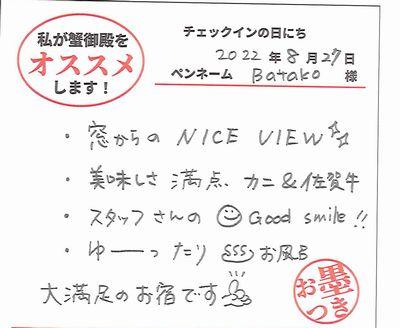 私が蟹御殿を
オススメ
します!
チェックインの日にち
2022年8月27日
ペンネーム Batako 様
・窓からの NICE VIEW☆☆
・美味しさ 満点 カニ&佐賀牛
・スタッフさんの Good smile!!
・ゆーったり お風呂
大満足のお宿です
お墨つき